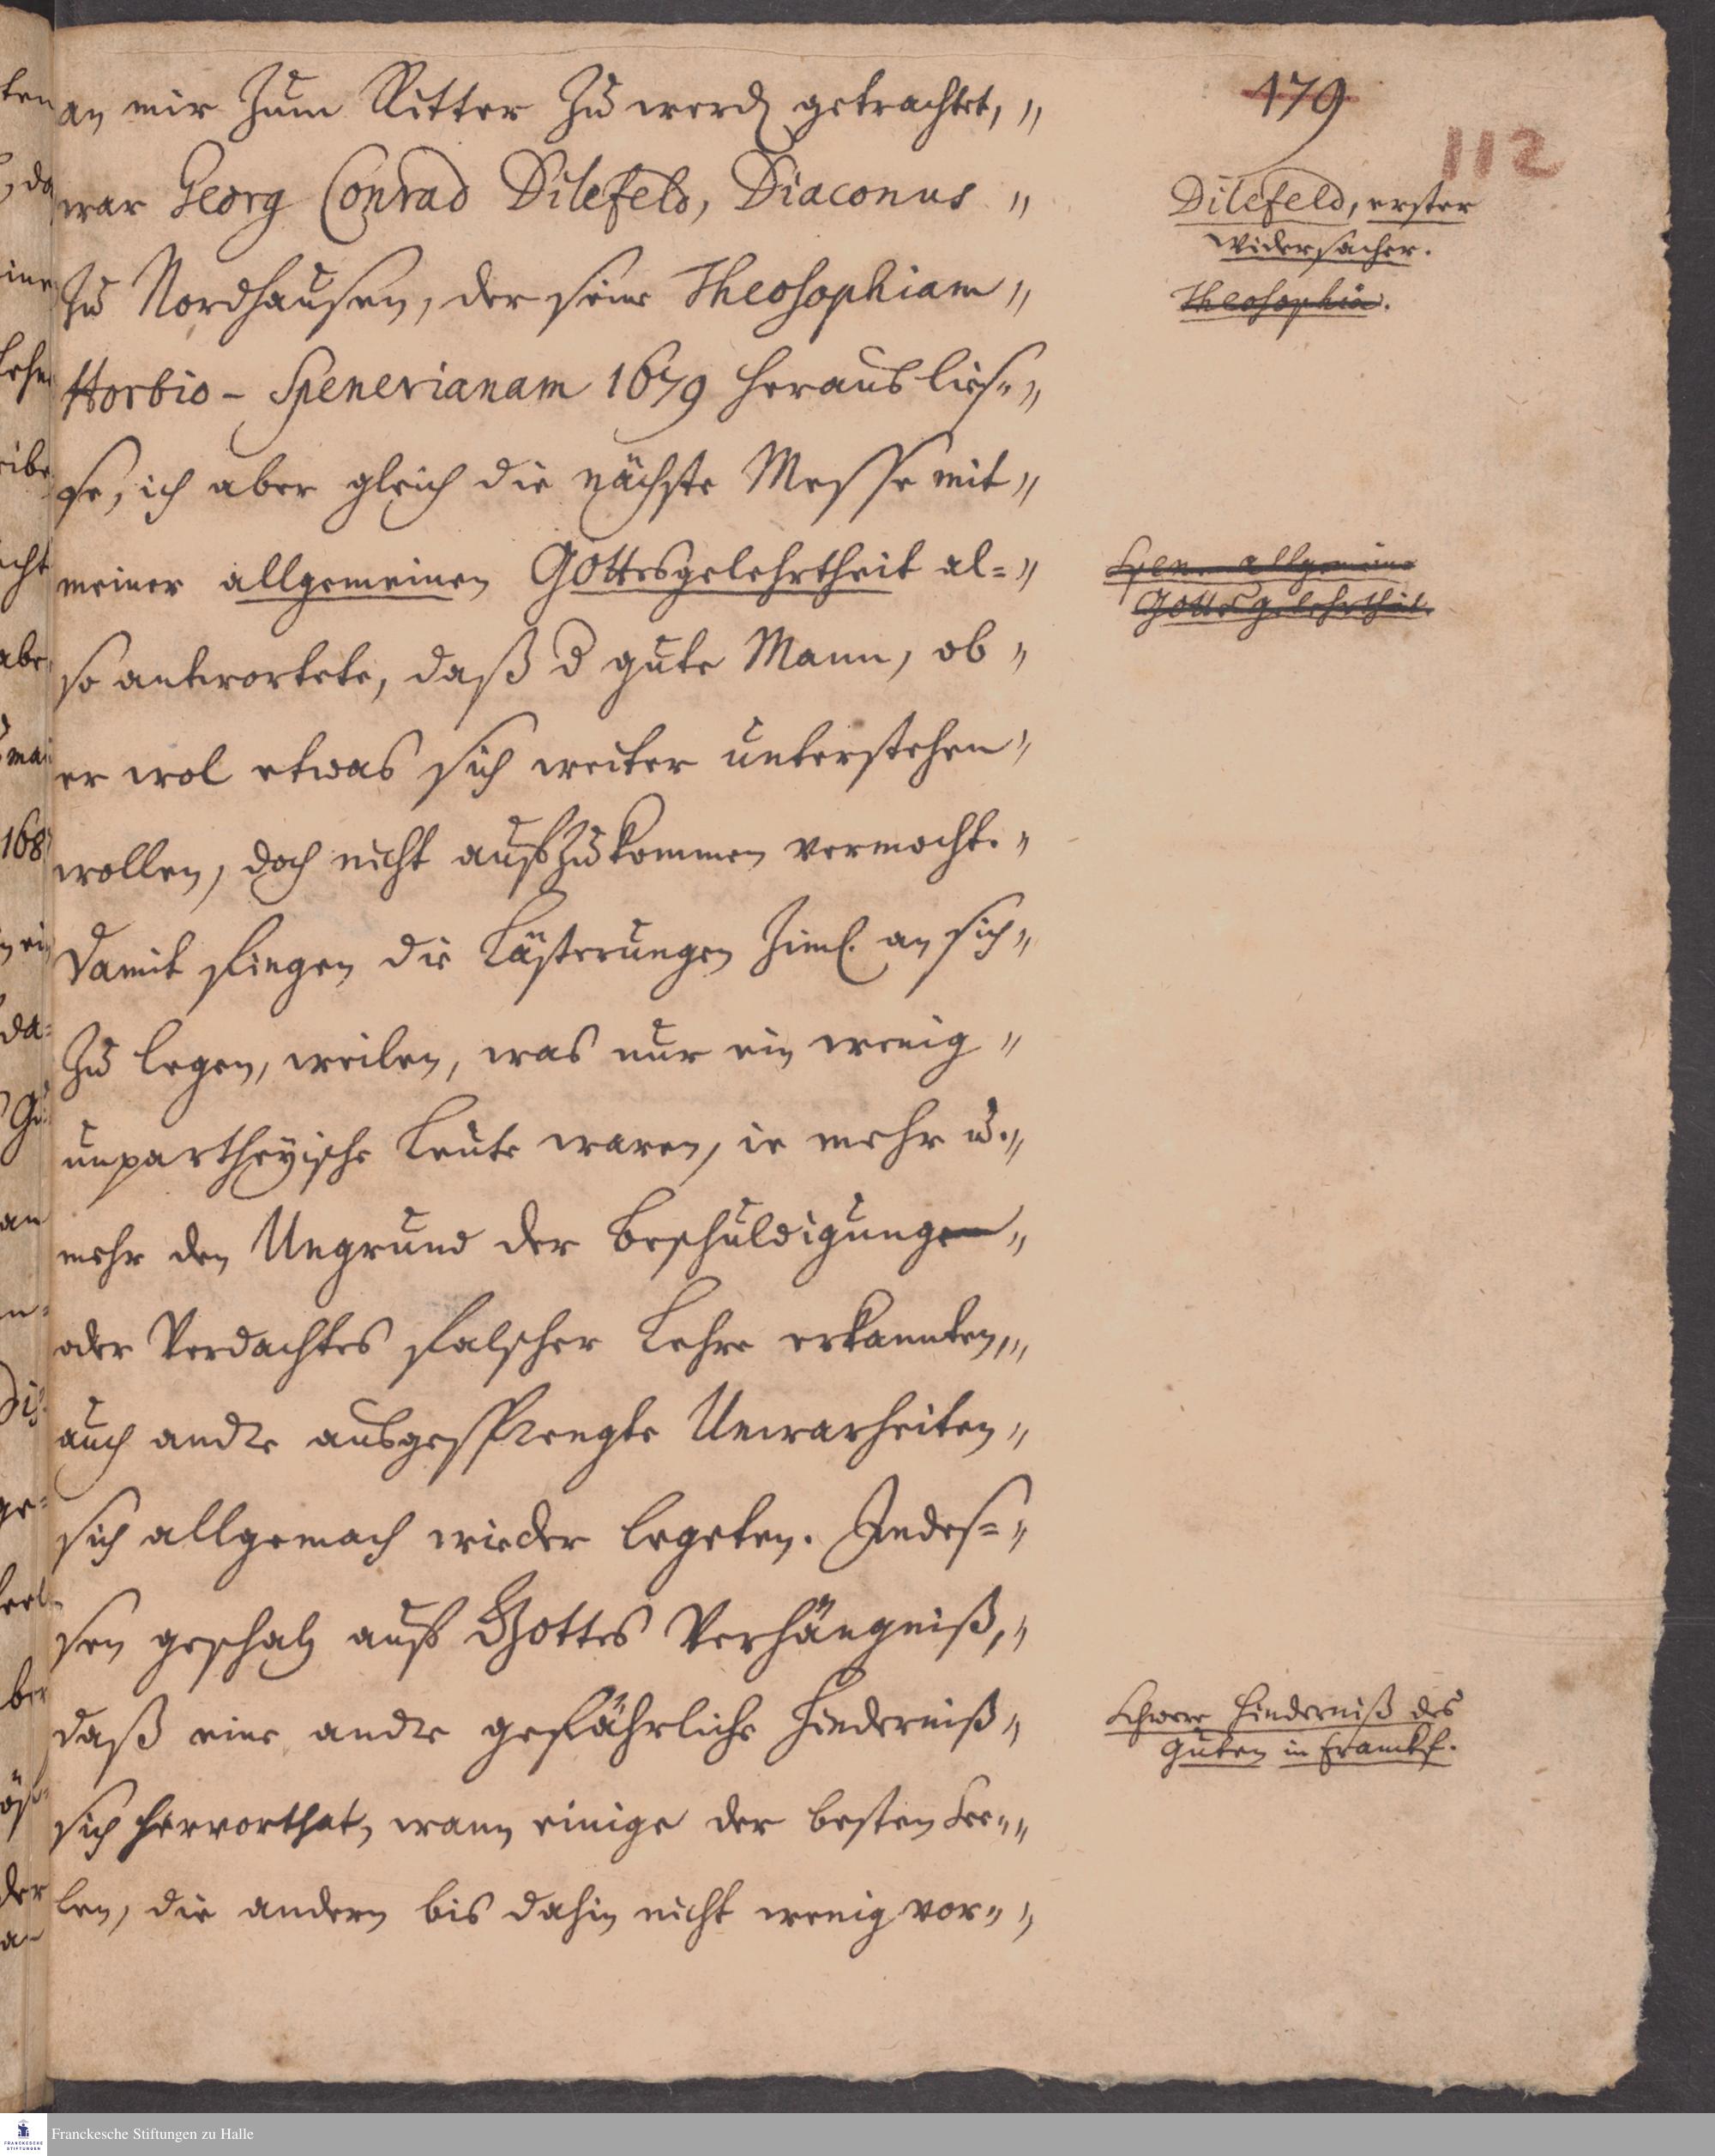 179
112
an mir Zum Ritter Zu werdẽ getrachtet, „
war Georg Conrad Dilefeld, Diaconus „
Zu Nordhausen, der seine Theosophiam „
Horbio - Spenerianam 1679 heraus lies= „
se, ich aber gleich die nächste Messe mit „
meiner allgemeinen GOttesgelehrtheit al= „
so antwortete, daß d gute Mann, ob „
er wol etwas sich weiter unterstehen „
wollen, doch nicht aufzukommen vermocht. „
Damit fiengen die Lästerungen Ziml. an sich „
Zu legen, weilen, was nur ein wenig „
unpartheyische Leute waren, ie mehr u. „
mehr den Ungrund der Beschuldigungen „
oder Verdachtes falscher Lehre erkannten, „
auch andre ausgesprengte Unwarheiten „
sich allgemach wieder legeten. Indes= „
sen geschah auß Gottes Verhängniß, „
daß eine andre gefährliche Hinderniß „
sich hervorthat, wann einige der besten See= „
len, die andern bis dahin nicht wenig vor= „
Dilefeld, erster
Widersacher.
Theosophia.
Spen. allgemeine
Gottesgelehrtheit.
Schwere Hinderniß des
Guten in Franckf.
Franckesche Stiftungen zu Halle
FRANCKESCHE
STIFTUNGEN